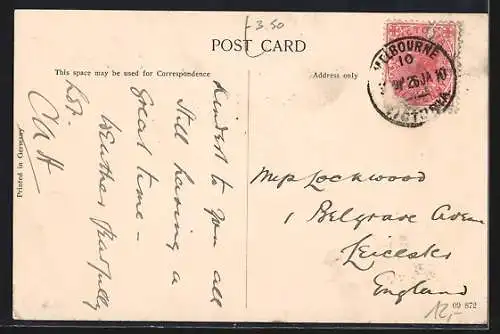 £3.50
POST CARD
This space may be used for Correspondence
Address only
MELBOURNE
10
26 JA 10
VICTORIA
Kindest to you all
Still having a
great time –
Weather fearfully
hot.
Printed in Germany
Miss Lockwood
1 Belgrave Aven
Leicester
England
09 872
12,-